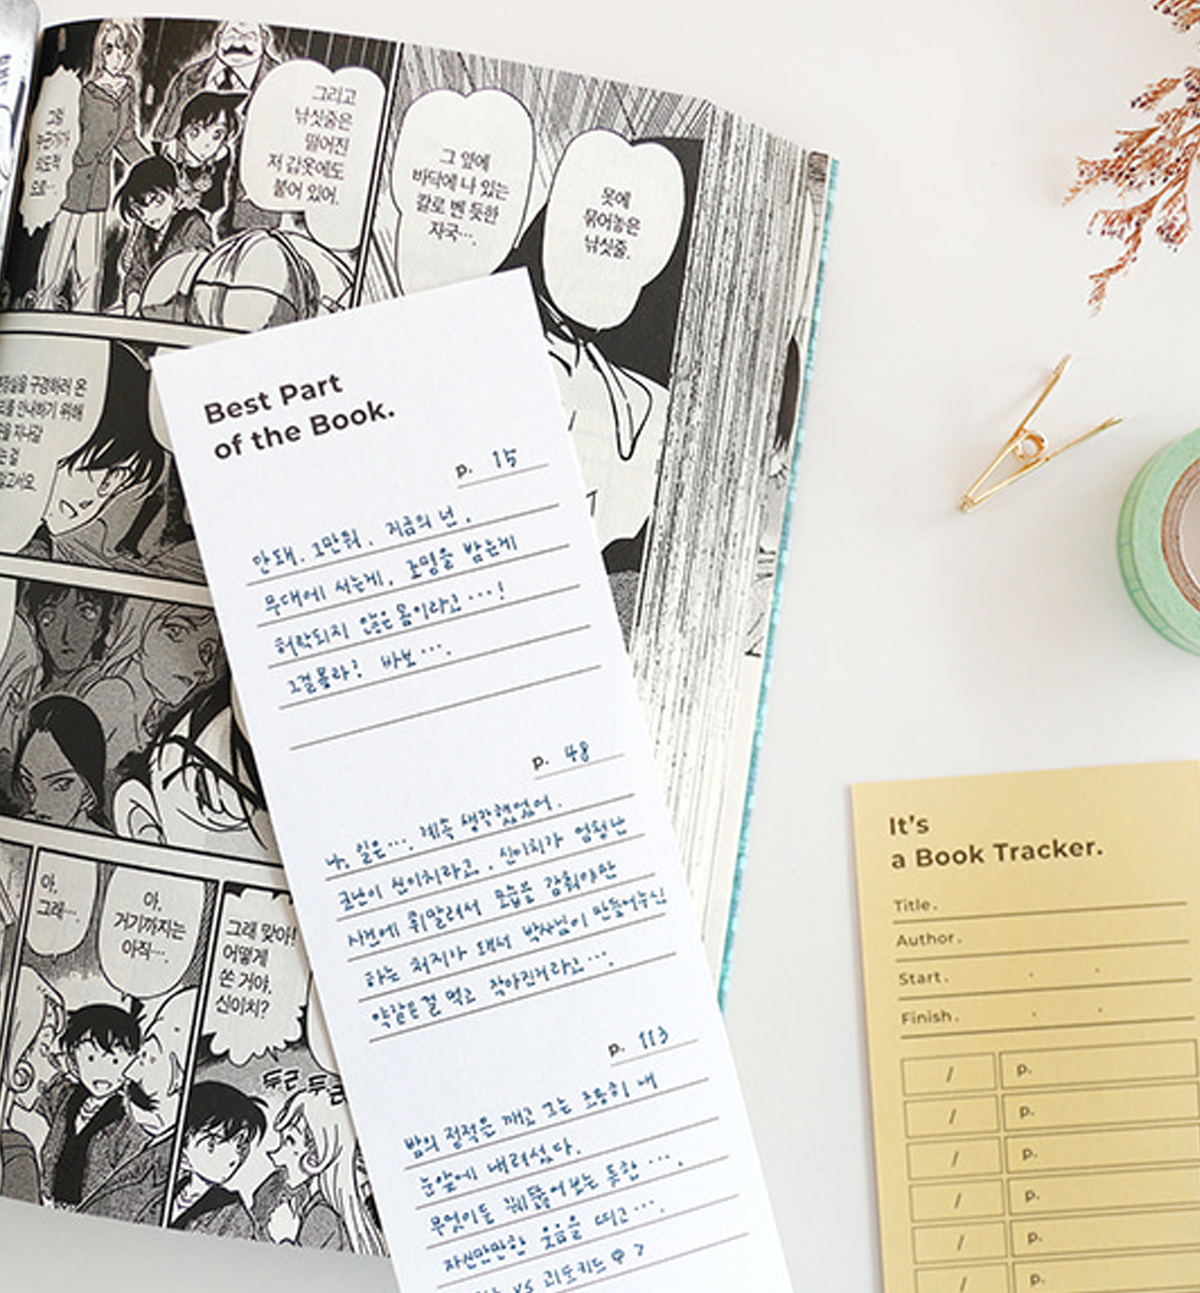 그리고
낚싯줄은
떨어진
저 갑옷에도
붙어 있어.
그 옆에
바닥에 나 있는
칼로 벤 듯한
자국….
못에
묶어놓은
낚싯줄.
구경하러 온
안내하기 위해
지나갈
아,
그래….
아,
거기까지는
아직….
그래 맞아!
어떻게
쓴 거야,
신이치?
두근 두근
Best Part
of the Book.
p. 15
안돼. 그만둬. 지금의 넌,
무대에 서는게, 조명을 받는게
허락되지 않은 몸이라고…!
그걸 몰라? 바보….
p. 48
나, 실은…. 계속 생각했었어.
코난이 신이치라고. 신이치가 엄청난
사건에 휘말려서 모습을 감춰야만
하는 처지가 돼서 박사님이 만들어주신
약같은걸 먹고 작아진거라고….
p. 113
밤의 정적을 깨고 그는 조용히 내
눈앞에 내려섰다.
무엇이든 꿰뚫어 보는 듯한 …,
자신만만한 웃음을 띠고….
VS 괴도키드
It's
a Book Tracker.
Title.
Author.
Start. . .
Finish. . .
/ p.
/ p.
/ p.
/ p.
/ p.
/ p.